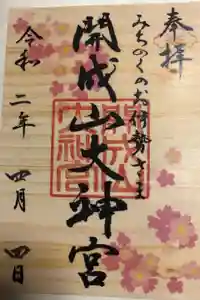 奉拝
みちのくのお伊勢さま
開成山大神宮
令和二年四月四日